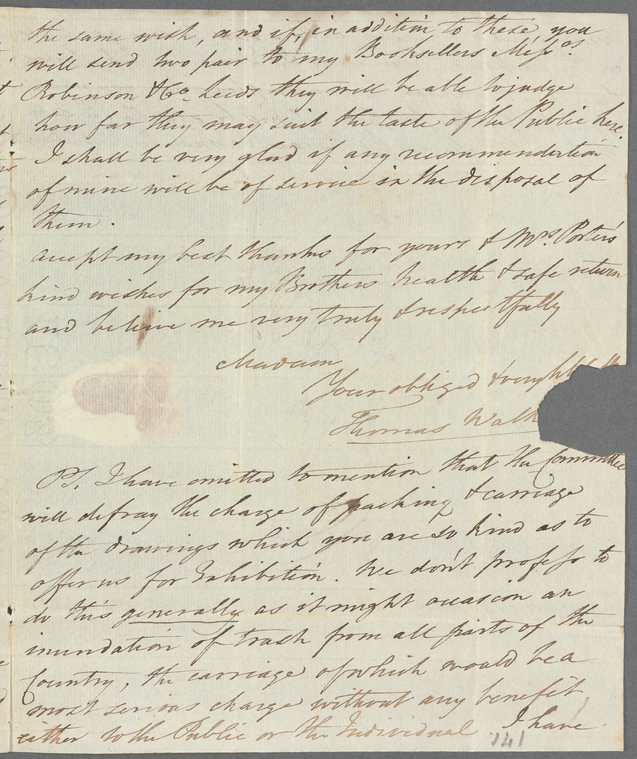 the same wish, and if, in addition to these you
will send two pair to my Booksellers Mess.rs
Robinson & Co. Leeds they will be able to judge
how far they may suit the taste of the Public here.
I shall be very glad if any recommendation
of mine will be of service in the disposal of
them.
Accept my best thanks for yours & Mrs. Porter's
kind wishes for my Brothers health & safe return
and believe me very truly & respectfully
Madam
Your obliged &
Thomas Walk
P.S. I have omitted to mention that the Committee
will defray the charge of packing & carriage
of the drawings which you are so kind as to
offer us for Exhibition. We don't profess to
do this generally as it might occasion an
inundation of trash from all parts of the
Country, the carriage of which would be a
most serious charge without any benefit
either to the Public or the Individual I have
141